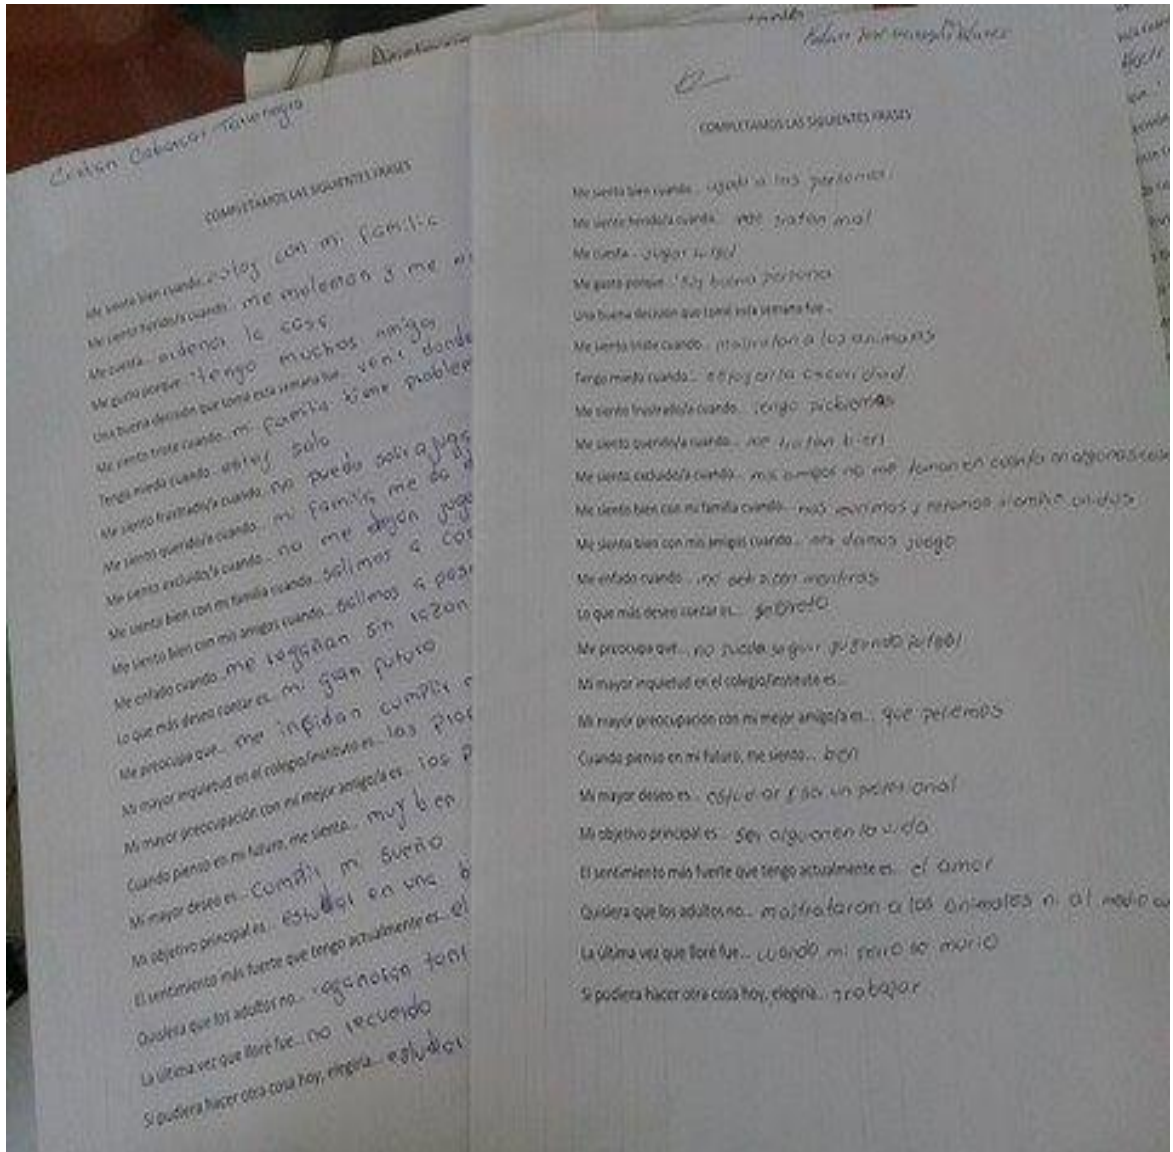 Cristian Cabarcas
COMPLETAMOS LAS SIGUIENTES FRASES
Me siento bien cuando... estoy con mi familia
Me siento herido/a cuando... me molestan y me
Me cuesta... ordenar la casa
Me gusto porque... tengo muchos amigos
Una buena decisión que tomé esta semana fue... venir donde
Me siento triste cuando... mi familia tiene problem
Tengo miedo cuando... estoy solo
Me siento frustrado/a cuando... no puedo salir a jug
Me siento querido/a cuando... mi familia me da
Me siento excluido/a cuando... no me dejan jug
Me siento bien con mi familia cuando... salimos a
Me siento bien con mis amigos cuando... salimos a pas
Me enfado cuando... me regañan sin razon
Lo que más deseo contar es... mi gran futuro
Me preocupa que... me inpidan cumplir
Mi mayor inquietud en el colegio/instituto es... las
Mi mayor preocupación con mi mejor amigo/a es... los
Cuando pienso en mi futuro, me siento... muy bien
Mi mayor deseo es... cumplir mi sueño
Mi objetivo principal es... estudiar en una
El sentimiento más fuerte que tengo actualmente es... el
Quisiera que los adultos no... regañaran tant
La última vez que lloré fue... no recuerdo
Si pudiera hacer otra cosa hoy, elegiría... estudiar
COMPLETAMOS LAS SIGUIENTES FRASES
Me siento bien cuando... ayudo a las personas.
Me siento herido/a cuando... me tratan mal
Me cuesta... jugar
Me gusto porque... soy buena persona
Una buena decisión que tomé esta semana fue...
Me siento triste cuando... maltratan a los animales
Tengo miedo cuando... en la oscuridad
Me siento frustrado/a cuando... tengo problemas
Me siento querido/a cuando... me tratan bien
Me siento excluido/a cuando... mis amigos no me toman en cuenta en algunas cosas
Me siento bien con mi familia cuando... nos reunimos y estamos siempre unidos
Me siento bien con mis amigos cuando... juego
Me enfado cuando... mentiras
Lo que más deseo contar es... secreto
Me preocupa que... no pueda seguir jugando
Mi mayor inquietud en el colegio/instituto es...
Mi mayor preocupación con mi mejor amigo/a es... que peleemos
Cuando pienso en mi futuro, me siento... bien
Mi mayor deseo es... estudiar y ser un profesional
Mi objetivo principal es... ser alguien en la vida
El sentimiento más fuerte que tengo actualmente es... el amor
Quisiera que los adultos no... maltrataran a los animales ni al medio
La última vez que lloré fue... cuando mi perro se murio
Si pudiera hacer otra cosa hoy, elegiría... trabajar